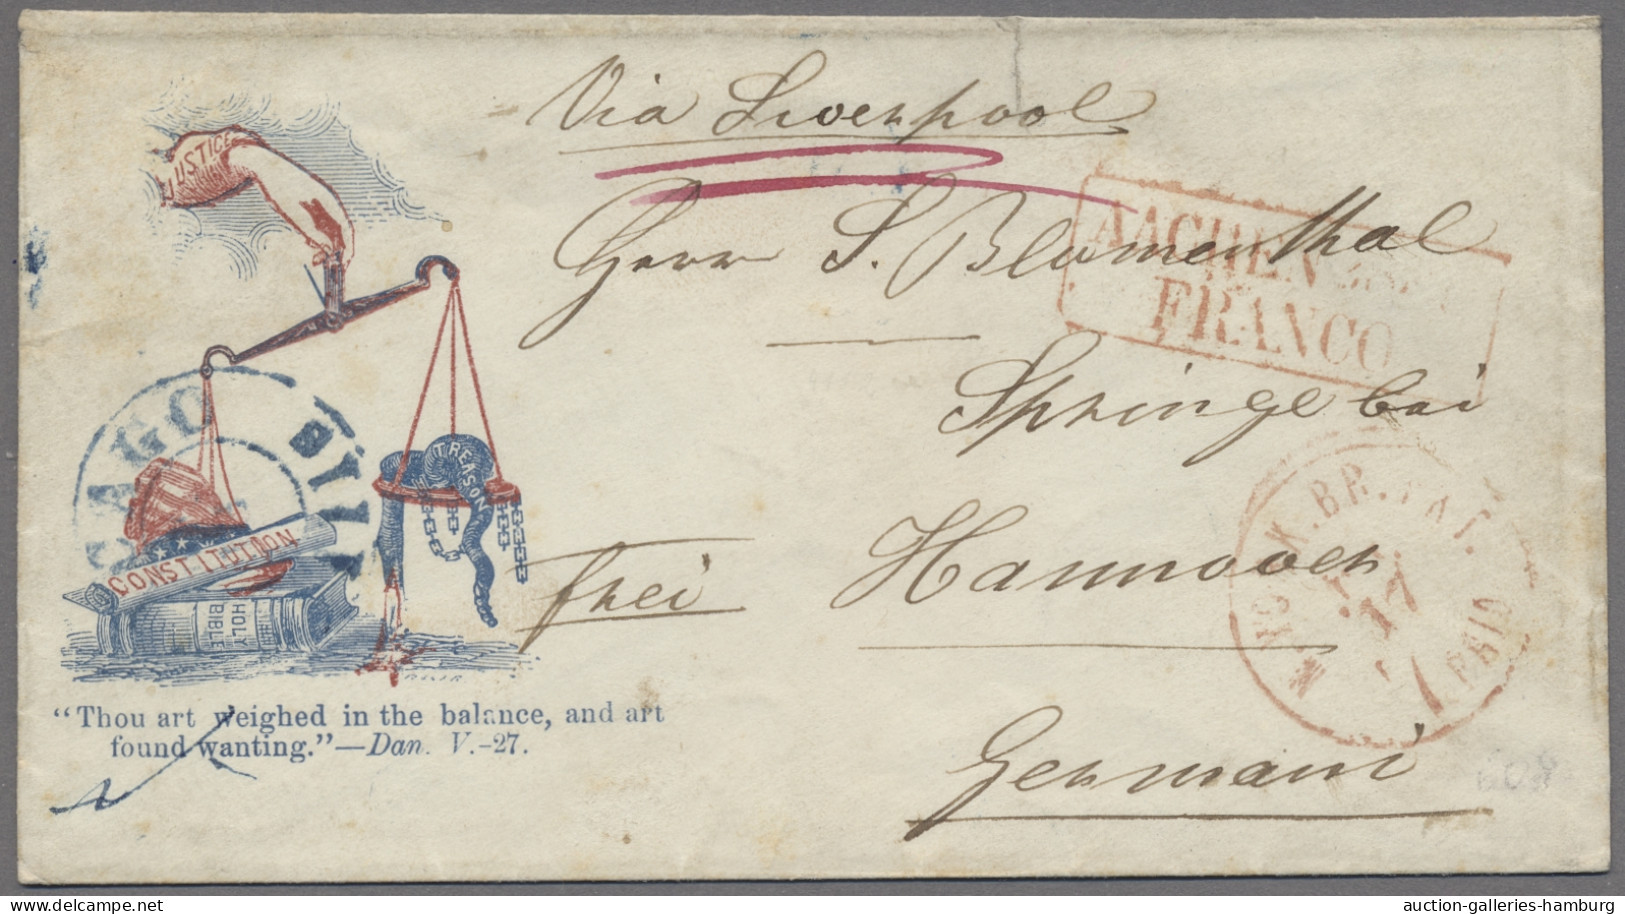 Via Liverpool
Herr S. Blumenthal
Springe bei
Hannover
frei
Germani
AACHEN
FRANCO
N. YORK. BR. PKT.
17
PAID
CAGO
ILL
JUSTICE
TREASON
CONSTITUTION
HOLY
BIBLE
"Thou art weighed in the balance, and art
found wanting."—Dan. V.-27.
auction-galleries-hamburg